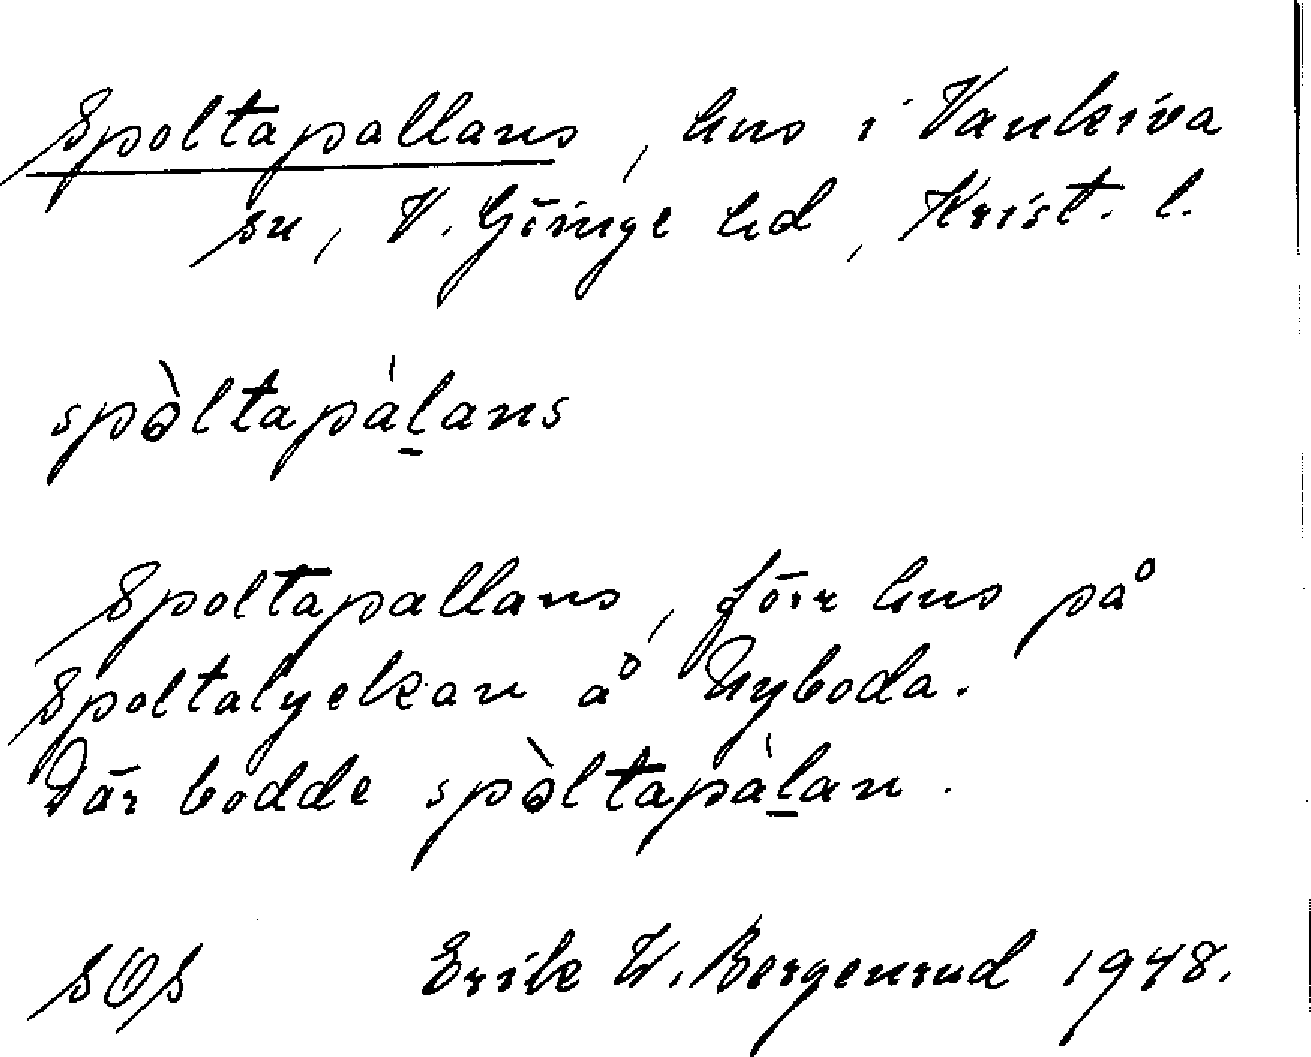 Spoltapallans, hus i Vankiva
sn, V. Göinge hd, Krist. l.
spòltapàl̠ans
Spoltapallans, förr hus på
Spoltalyckan å Nyboda.
Där bodde spòltapàl̠an.
SOS Erik W. Bergenrud 1948.